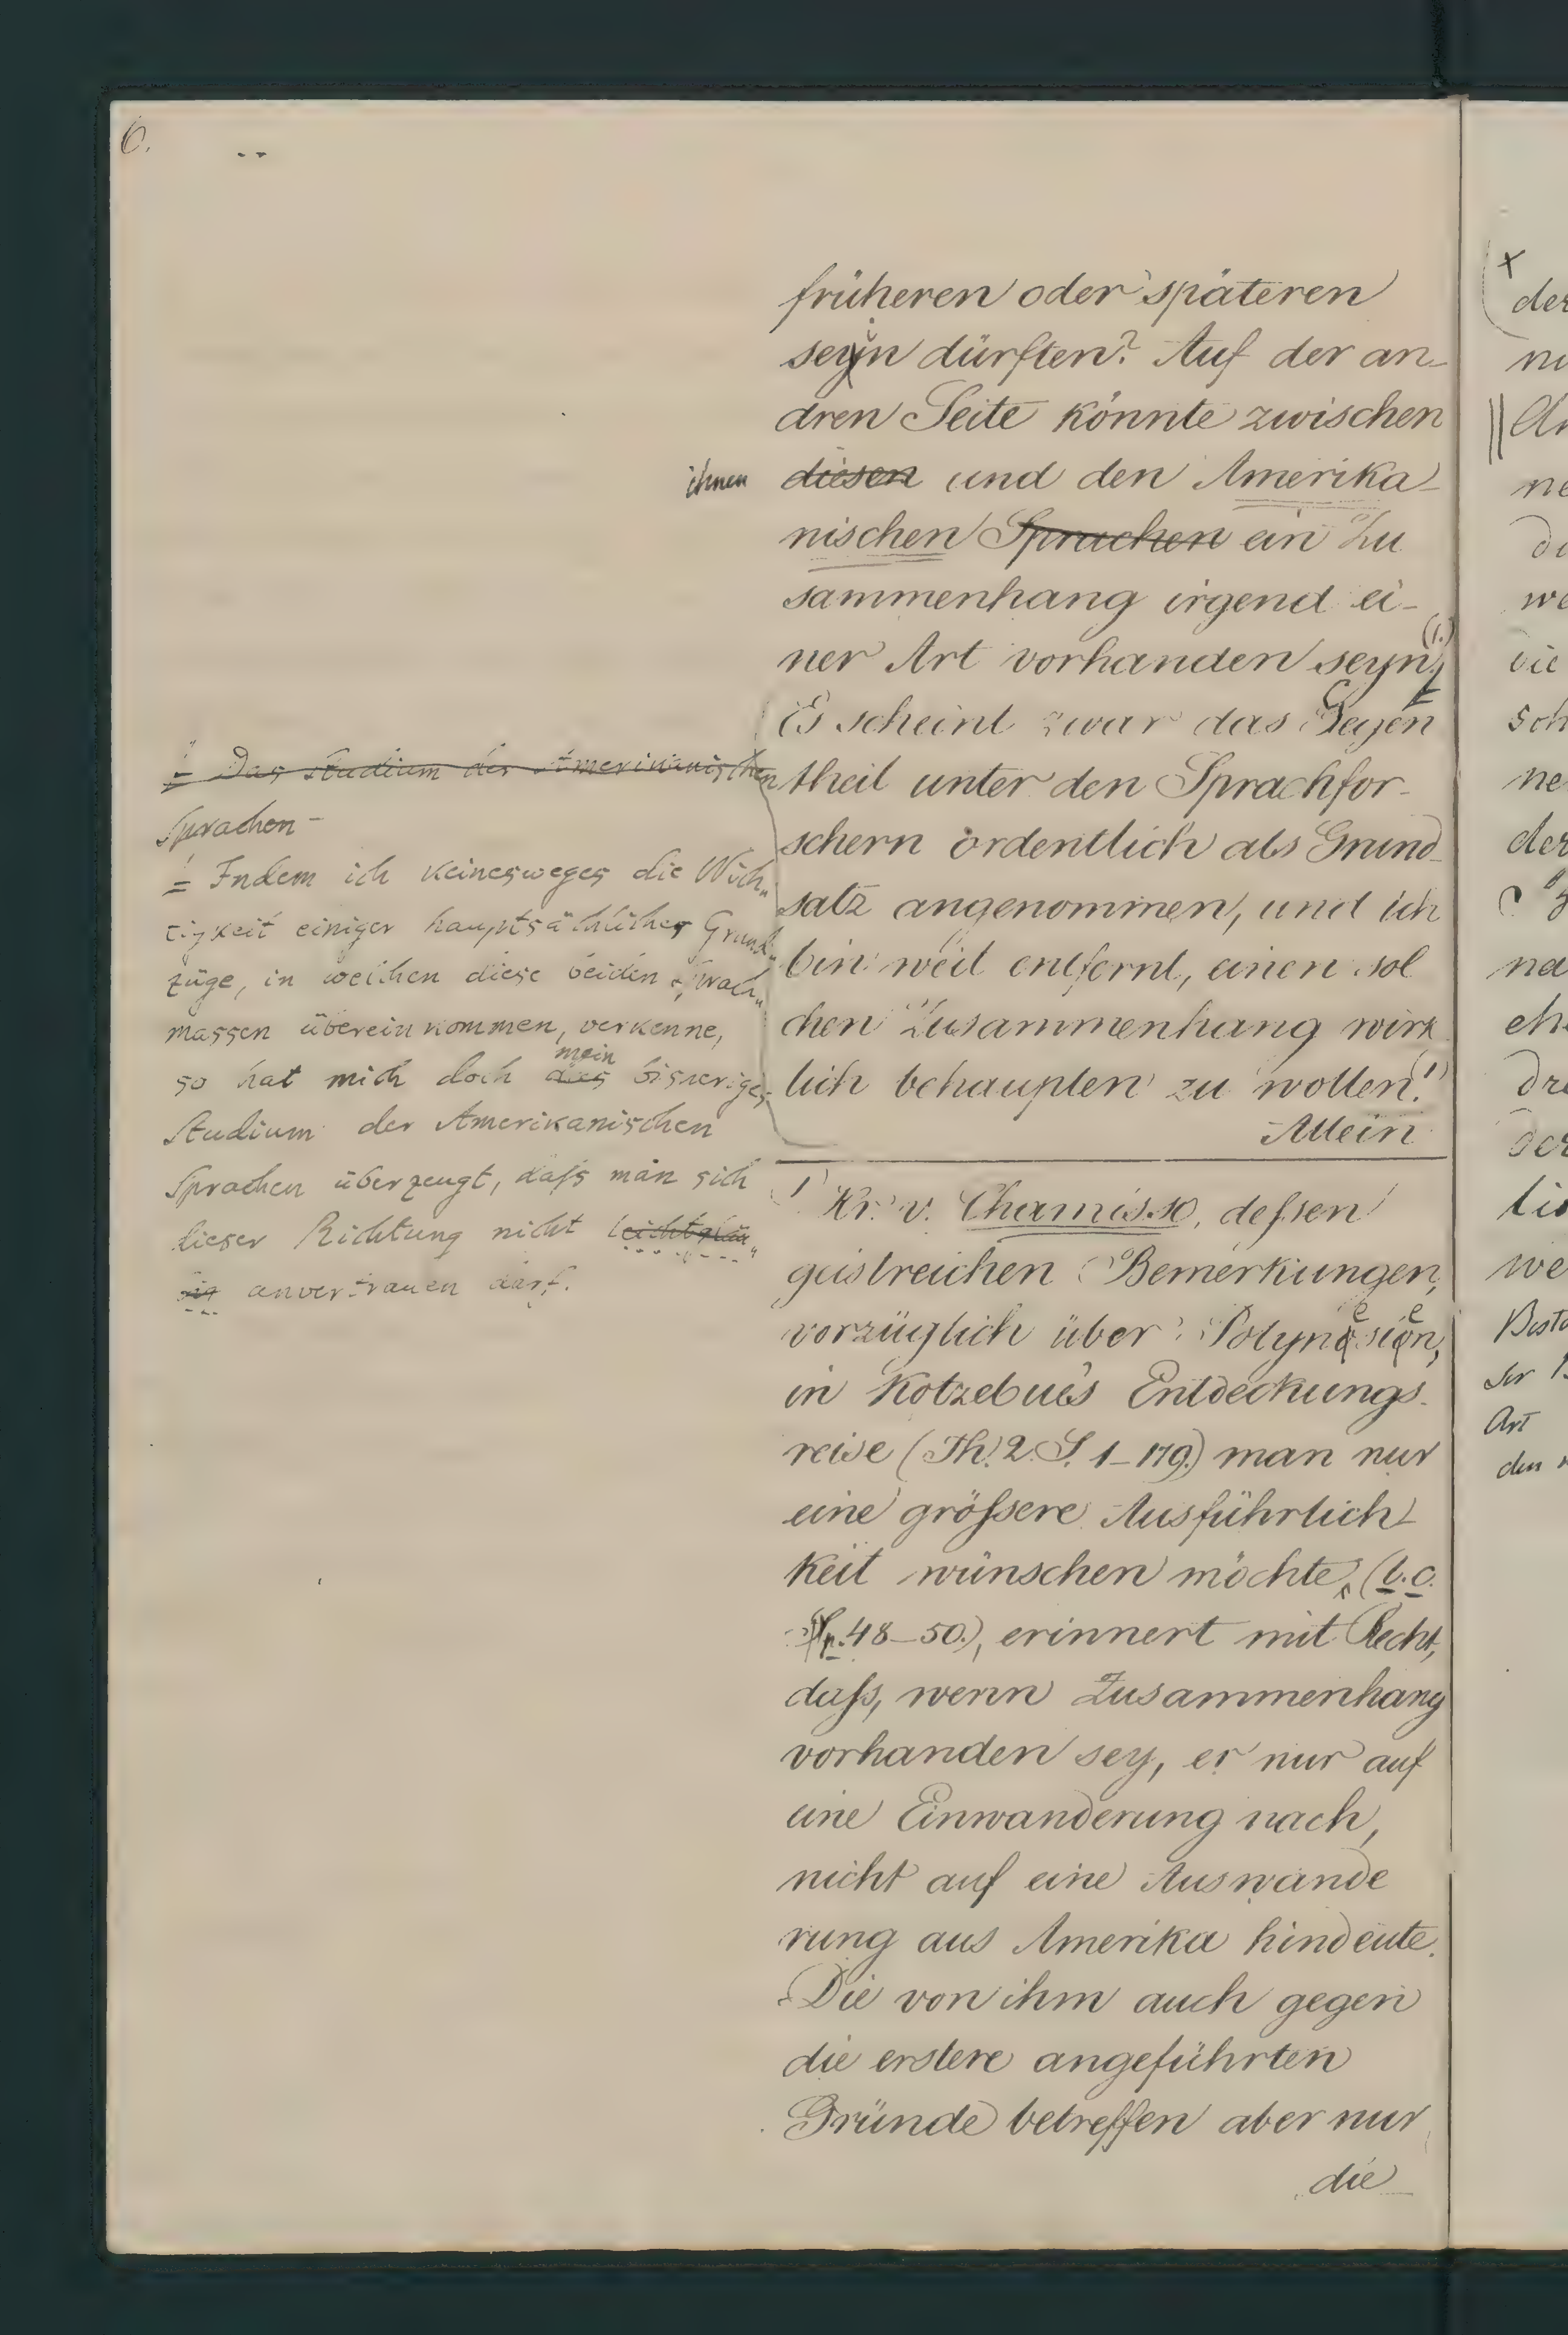 6.
früheren oder späteren
seyn dürften? Auf der an-
dren Seite könnte zwischen
ihnen
diesen und den Amerika-
nischen Sprachen ein Zu
sammenhang irgend ei-
ner Art vorhanden seyn (1.)
Es scheint zwar das Gegen
theil unter den Sprachfor-
schern ordentlich als Grund-
satz angenommen, und ich
bin weit entfernt, einen sol
chen Zusammenhang wirk
lich behaupten zu wollen. 1)
Allein
= Das Studium der Amerikanischen
Sprachen -
= Indem ich keinesweges die Wich„
tigkeit einiger hauptsächlicher Grund„
züge, in welchen diese beiden Sprach„
massen übereinkommen, verkenne,
mein
so hat mich doch das bisheriges
Studium der Amerikanischen
Sprachen überzeugt, dafs man sich
dieser Richtung nicht leichtgläu„
big anvertrauen darf.
1) Hr. v. Chamisso, defsen
geistreichen Bemerkungen,
vorzüglich über Polynesien,
in Kotzebue's Entdeckungs-
reise (Th. 2. S. 1-179.) man nur
eine gröfsere Ausführlich-
keit wünschen möchte, (l. c.
p. 48-50.), erinnert mit Recht,
dafs, wenn Zusammenhang
vorhanden sey, er nur auf
eine Einwanderung nach,
nicht auf eine Auswande
rung aus Amerika hindeute.
Die von ihm auch gegen
die erstere angeführten
Gründe betreffen aber nur
die
der
ne
die
sch
ne
der
na
dre
der
we
Art
den